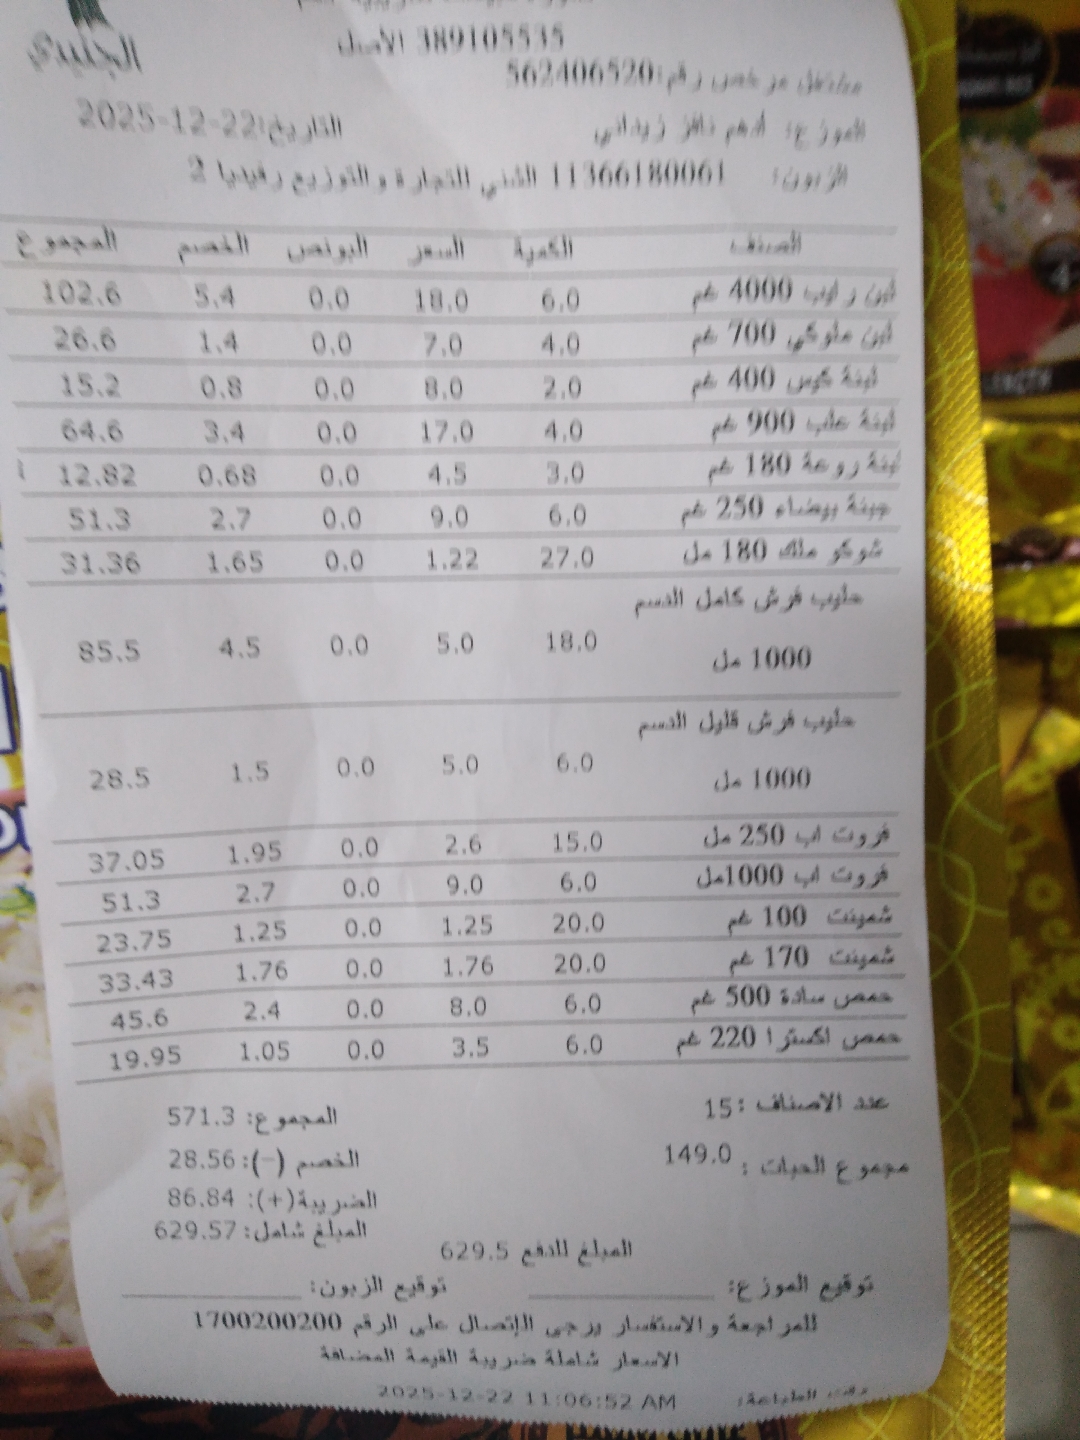 الجنيدي
389105535 الأصل
مشتغل مرخص رقم:562406520
الموزع: أدهم زيداني
التاريخ:2025-12-22
الزبون: 11366180061 للتجارة والتوزيع رفيديا 2
الصنف الكمية السعر البونص الخصم المجموع
لبن رايب 4000 غم 6.0 18.0 0.0 5.4 102.6
لبن ملوكي 700 غم 4.0 7.0 0.0 1.4 26.6
لبنة كوس 400 غم 2.0 8.0 0.0 0.8 15.2
لبنة علب 900 غم 4.0 17.0 0.0 3.4 64.6
لبنة روعة 180 غم 3.0 4.5 0.0 0.68 12.82
جبنة بيضاء 250 غم 6.0 9.0 0.0 2.7 51.3
شوكو ملك 180 مل 27.0 1.22 0.0 1.65 31.36
حليب فرش كامل الدسم
1000 مل 18.0 5.0 0.0 4.5 85.5
حليب فرش قليل الدسم
1000 مل 6.0 5.0 0.0 1.5 28.5
فروت اب 250 مل 15.0 2.6 0.0 1.95 37.05
فروت اب 1000مل 6.0 9.0 0.0 2.7 51.3
شمينت 100 غم 20.0 1.25 0.0 1.25 23.75
شمينت 170 غم 20.0 1.76 0.0 1.76 33.43
حمص سادة 500 غم 6.0 8.0 0.0 2.4 45.6
حمص اكسترا 220 غم 6.0 3.5 0.0 1.05 19.95
عدد الاصناف :15
المجموع: 571.3
مجموع الحبات : 149.0
الخصم (-): 28.56
الضريبة(+): 86.84
المبلغ شامل: 629.57
المبلغ للدفع 629.5
توقيع الموزع: توقيع الزبون:
للمراجعة والاستفسار يرجى الإتصال على الرقم 1700200200
الاسعار شاملة ضريبة القيمة المضافة
وقت الطباعة: 2025-12-22 11:06:52 AM